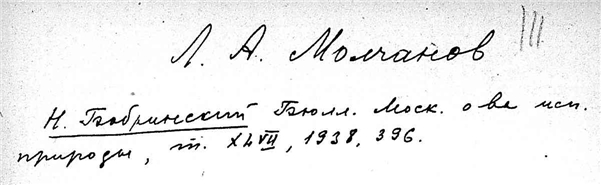 Л. А. Молчанов
Н. Бобринский Бюлл. Моск. о ва исп.
природы, т. XLVII, 1938, 396.